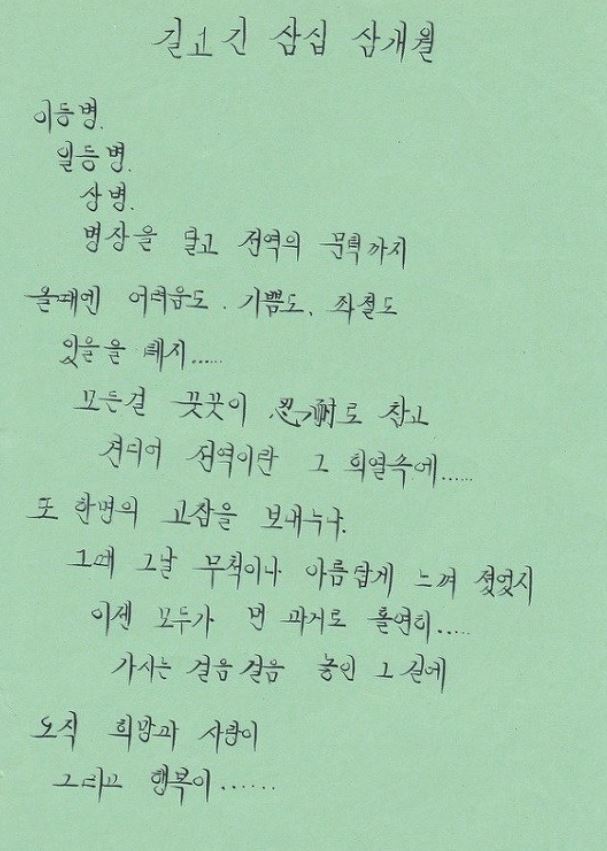 길고 긴 삼십 삼개월
이등병.
일등병.
상병.
병장을 달고 전역의 문턱까지
올때엔 어려움도. 기쁨도. 좌절도
있을을 테지......
모든걸 꿋꿋이 忍耐로 참고
견디어 전역이란 그 희열속에......
또 한명의 고참을 보내누나.
그때 그날 무척이나 아름답게 느껴 졌었지
이젠 모두가 먼 과거로 홀연히.....
가시는 걸음걸음 놓인 그 길에
오직 희망과 사랑이
그리고 행복이......